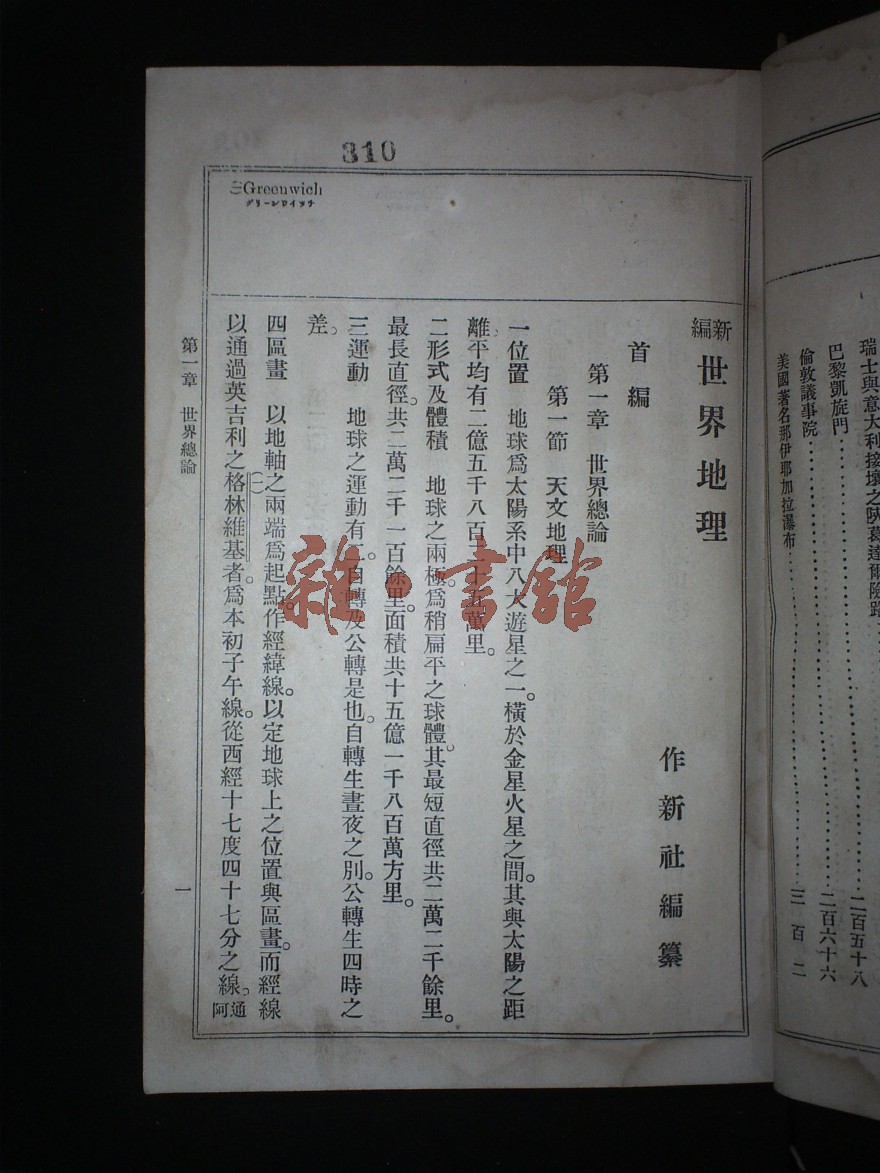 瑞士與意大利接壤之
二百五十八
巴黎凱旋門
二百六十六
倫敦議事院
三百二
美國著名那伊耶加拉瀑布
310
Greenwich
グリーンロイッチ
新編 世界地理
作新社編纂
首編
第一章 世界總論
第一節 天文地理
一位置 地球爲太陽系中八大遊星之一。橫於金星火星之間。其與太陽之距
離。平均有二億五千八百二十五萬里。
二形式及體積 地球之兩極。爲稍扁平之球體。其最短直徑。共二萬二千餘里。
最長直徑。共二萬二千一百餘里。面積共十五億一千八百萬方里。
三運動 地球之運動有二。自轉及公轉是也。自轉生晝夜之別。公轉生四時之
差。
四區畫 以地軸之兩端爲起點。作經緯線。以定地球上之位置與區畫。而經線
以通過英吉利之格林維基者。爲本初子午線。從西經十七度四十七分之線。通阿
第一章 世界總論
一
雜·書館